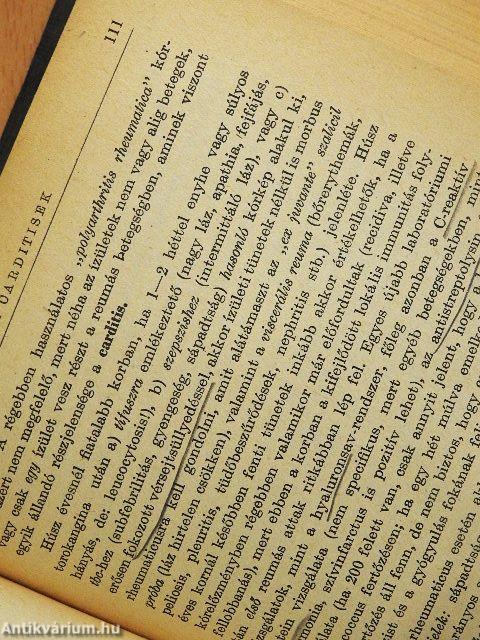 OARDITISEK 111
A régebben használatos „polyarthritis rheumatica” kór-
nem megfelelő, mert néha az ízületek nem vagy alig betegek,
vagy csak egy ízület vesz részt a reumás betegségben, aminek viszont
egyik állandó részjelensége a carditis.
Húsz évesnél fiatalabb korban, ha 1—2 héttel enyhe vagy súlyos
torokangina után a) tífuszra emlékeztető (nagy láz, apathia, fejfájás,
hányás, de: leucocytosis!), b) szepszishez (intermittáló láz), vagy c)
tbc-hez (subfebrilitás, gyengeség, sápadtság) hasonló kórkép alakul ki,
erősen fokozott vérsejtsüllyedéssel, akkor ízületi tünetek nélkül is morbus
rheumaticusra kell gondolni, amit alátámaszt az „ex juvante” szalicil
próba (láz hirtelen csökken), valamint a viscerális reuma (bőrerythemák,
peliosis, pleuritis, tüdőbeszűrődések, nephritis stb.) jelenléte. Húsz
éves kornál későbben fenti tünetek inkább akkor értékelhetők, ha a
kórelőzményben régebben valamikor már előfordultak (recidiva, illetve
fellobbanás), mert ebben a korban a kifejlődött lokális immunitás foly-
tán első reumás attak ritkábban lép fel. Egyes újabb laboratóriumi
vizsgálatok, mint a hyaluronsav-rendszer, főleg azonban a C-reaktív
vizsgálata (nem specifikus, mert egyéb betegségekben, mint
monia, szívinfarctus is pozitív lehet), az antistreptolysin
lata (ha 200 felett van, csak annyit jelent, hogy a
coccus fertőzésen; ha egy hét múlva emelke
tőzés áll fenn, de nem biztos, hogy
ist és a gyógyulás fokának fe
rheumaticus esetén a
lek: sápadtság
Antikvárium.hu